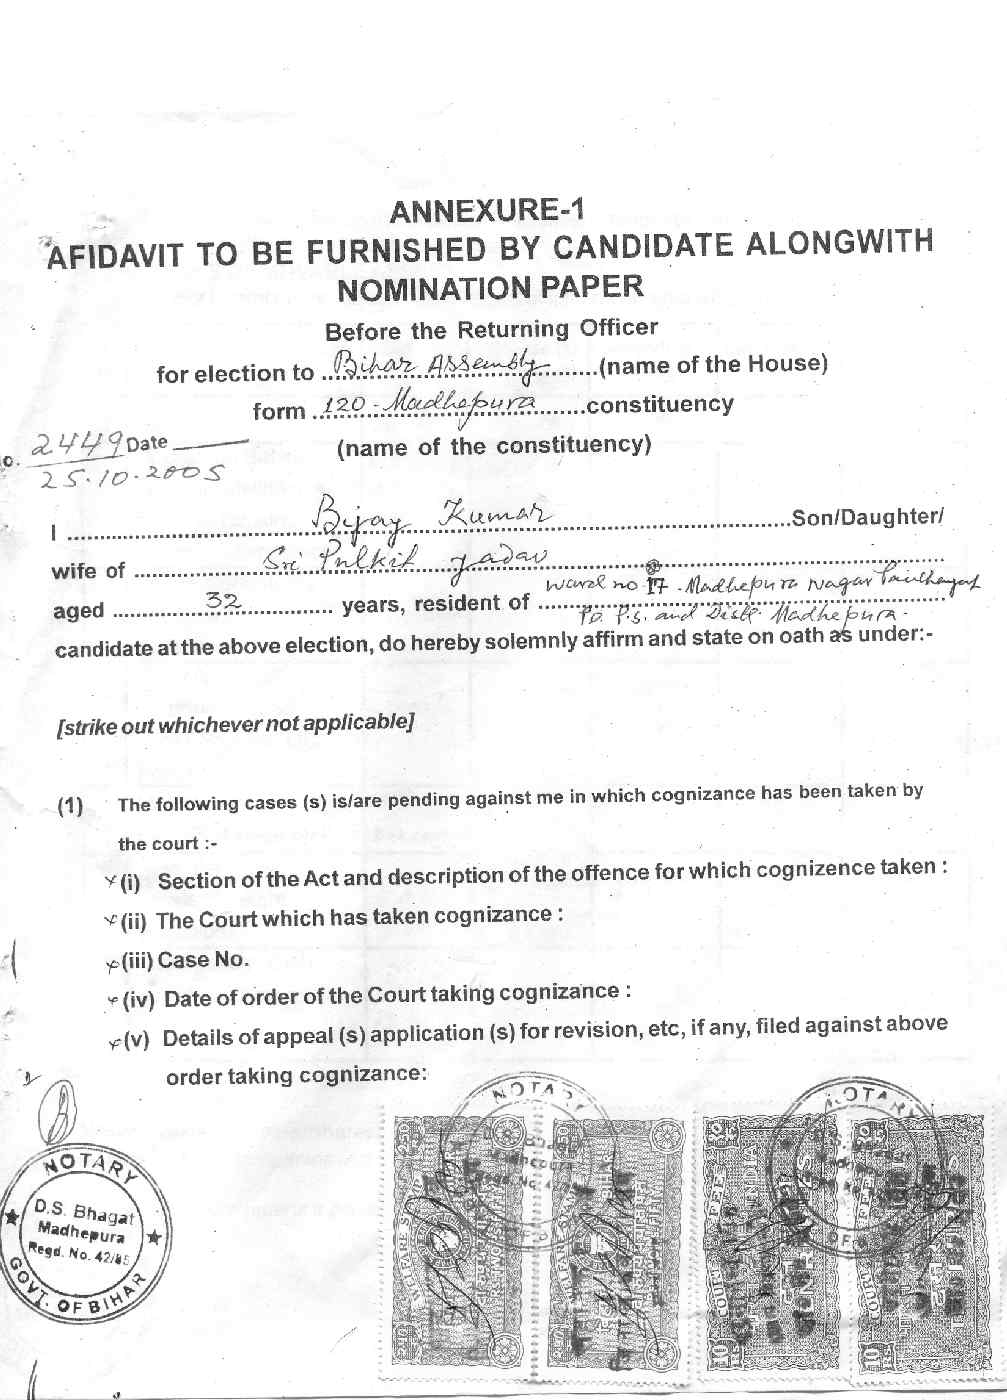 ANNEXURE-1
AFIDAVIT TO BE FURNISHED BY CANDIDATE ALONGWITH
NOMINATION PAPER
Before the Returning Officer
for election to Bihar Assembly (name of the House)
form 120-Madhepura constituency
(name of the constituency)
o. 2449 Date
25.10.2005
I Bijay Kumar Son/Daughter/
wife of Sri Pulkit Yadav
aged 32 years, resident of ward no 17 - Madhepura Nagar
Po. P.s. and Distt. Madhepura.
candidate at the above election, do hereby solemnly affirm and state on oath as under:-
[strike out whichever not applicable]
(1) The following cases (s) is/are pending against me in which cognizance has been taken by
the court :-
(i) Section of the Act and description of the offence for which cognizence taken :
(ii) The Court which has taken cognizance :
(iii) Case No.
(iv) Date of order of the Court taking cognizance :
(v) Details of appeal (s) application (s) for revision, etc, if any, filed against above
order taking cognizance:
NOTARY
D.S. Bhagat
Madhepura
Regd. No. 42/85
GOVT. OF BIHAR
NOTARY
NOTARY
COURT FEES
INDIA
10 RS
COURT FEES
10 RS